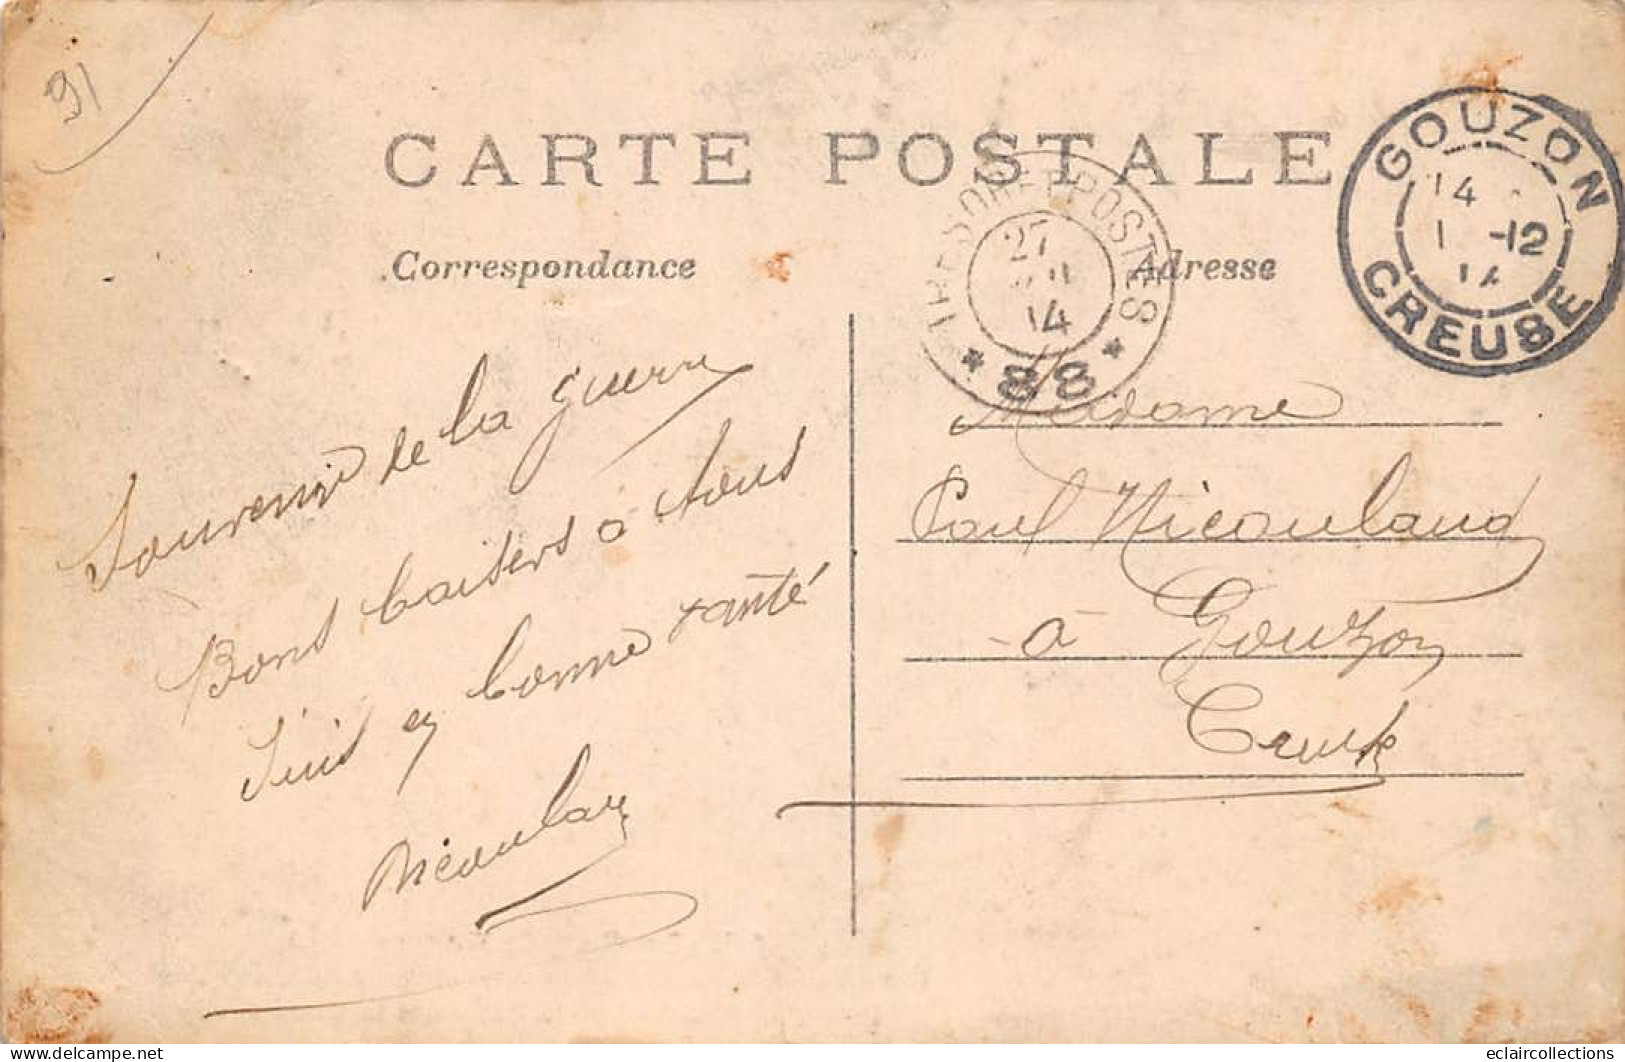 91
CARTE POSTALE
Correspondance
Adresse
TRESOR ET POSTES
27
14
* 88 *
GOUZON
14
1 -12
14
CREUSE
Souvenir de la guerre
Bons baisers à tous
Suis en bonne santé
Nicoulau
Madame
Paul Nicoulaud
- à Gouzon
Creuse
delcampe.net
eclaircollections